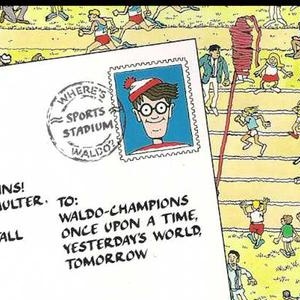 WHERE'S
SPORTS
STADIUM
WALDO?
INS!
MULTER.
TALL
TO:
WALDO-CHAMPIONS
ONCE UPON A TIME,
YESTERDAY'S WORLD,
TOMORROW